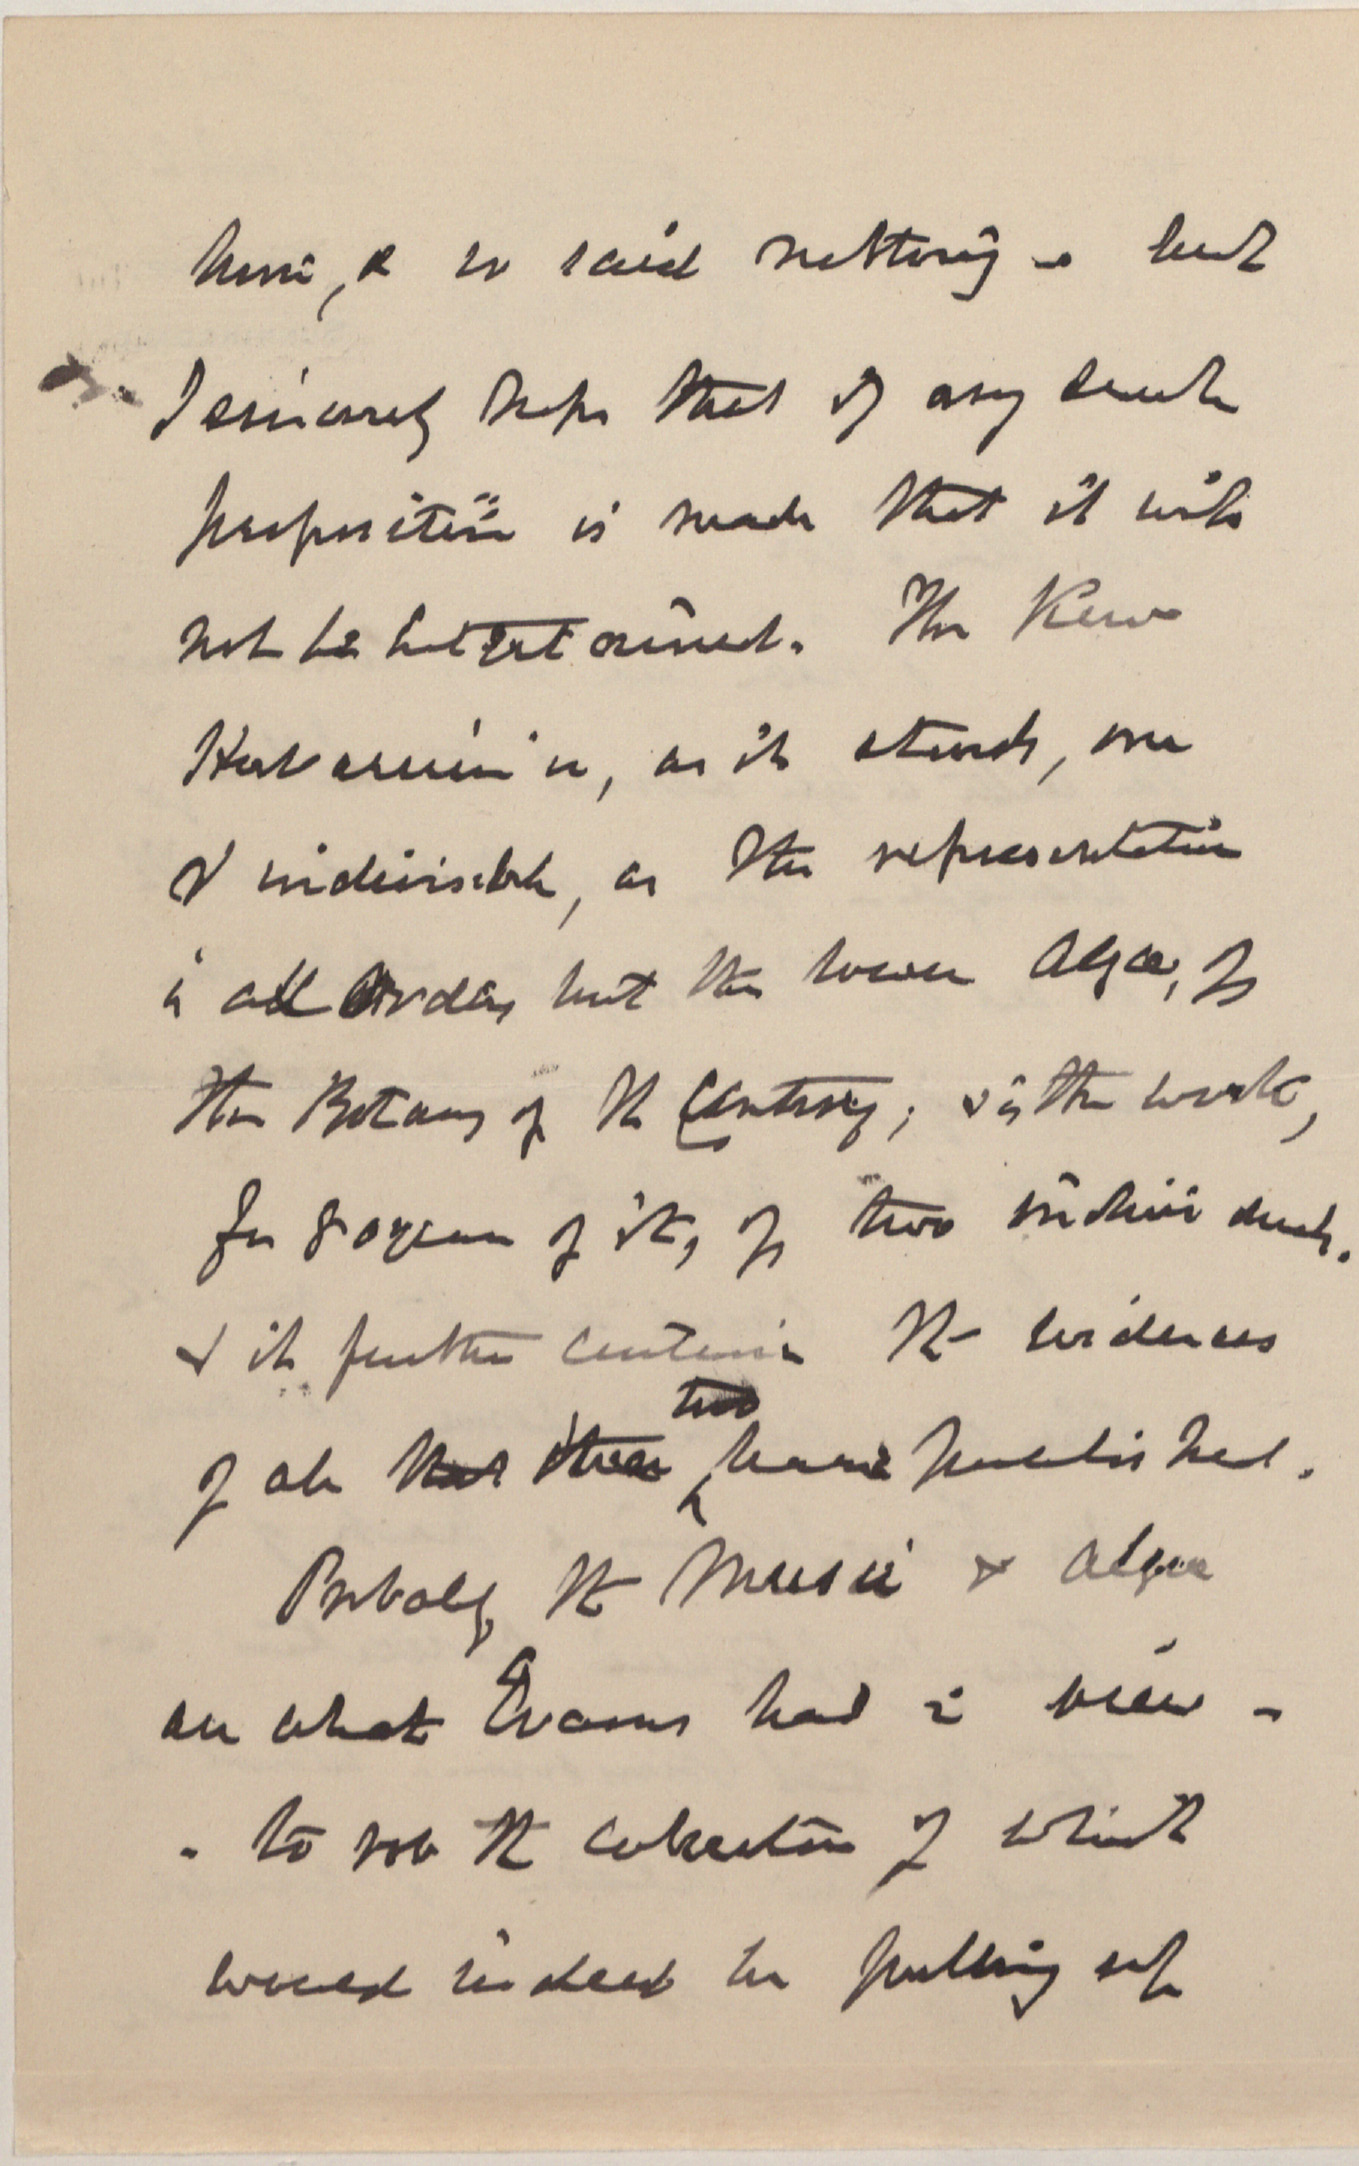 him, & so said nothing - but
I sincerely hope that if any such
proposition is made that it will
not be entertained. The Kew
Herbarium is, as it stands, one
& indivisible, as the representative
in all Orders but the lower Algae, of
the Botany of the Century; & is the work,
for 80 years of it, of two individuals.
& it further contains the evidences
of all that these two have published.
Probably the Musci & Algae
are what Evans had in view -
- to rob the collection of which
would indeed be pulling up